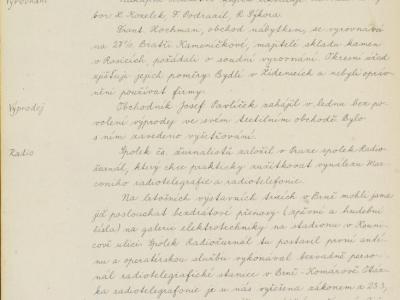 bor K. Kozelek, F. Podrazil, R. Sýkora.
Frant. Hochman, obchod nábytkem, se vyrovnává
na 27%. Bratři Kameníčkové, majitelé skladu kamen
v Rosicích požádali o soudní vyrovnání. Okresní úřad
zjišťuje jejich poměry. Bydlí v Židenicích a nebyli opráv-
něni používat firmy.
Výprodej
Obchodník Josef Pavlíček zahájil v lednu bez po-
volení výprodej ve svém textilním obchodě. Bylo
s ním zavedeno vyšetřování.
Radio
Spolek čs. žurnalistů založil v Praze spolek Radio-
žurnál, který chce prakticky zužitkovat vynálezu Mar-
coniho radiotelegrafie a radiotelefonie.
Na letošních výstavních trzích v Brně mohli jsme
již poslouchat bezdrátové přenosy (zpěvní a hudební
čísla) na galerii elektrotechniky na stadionu v Kouni-
cově ulici. Spolek Radiožurnál tu postavil první anté-
nu a operatérskou službu vykonával bezvadně perso-
nál radiotelegrafické stanice v Brně-Komárově. Otáz-
ka radiotelegrafonie je u nás vyřešena zákonem z 23.3,